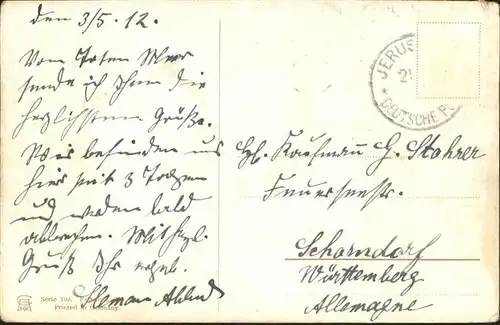 den 3/5.12.
Vom Toten Meer
sende ich Ihnen die
herzlichsten Grüße.
Wir befinden uns
hier seit 3 Tagen
und werden bald
abreisen. Mit herzl.
Gruß Ihr ergeb.
Serie 709.
Printed in Germany.
JERUS
DEUTSCHE P
Kaufmann G. Stohrer
Feuerseestr.
Schorndorf
Württemberg
Allemagne